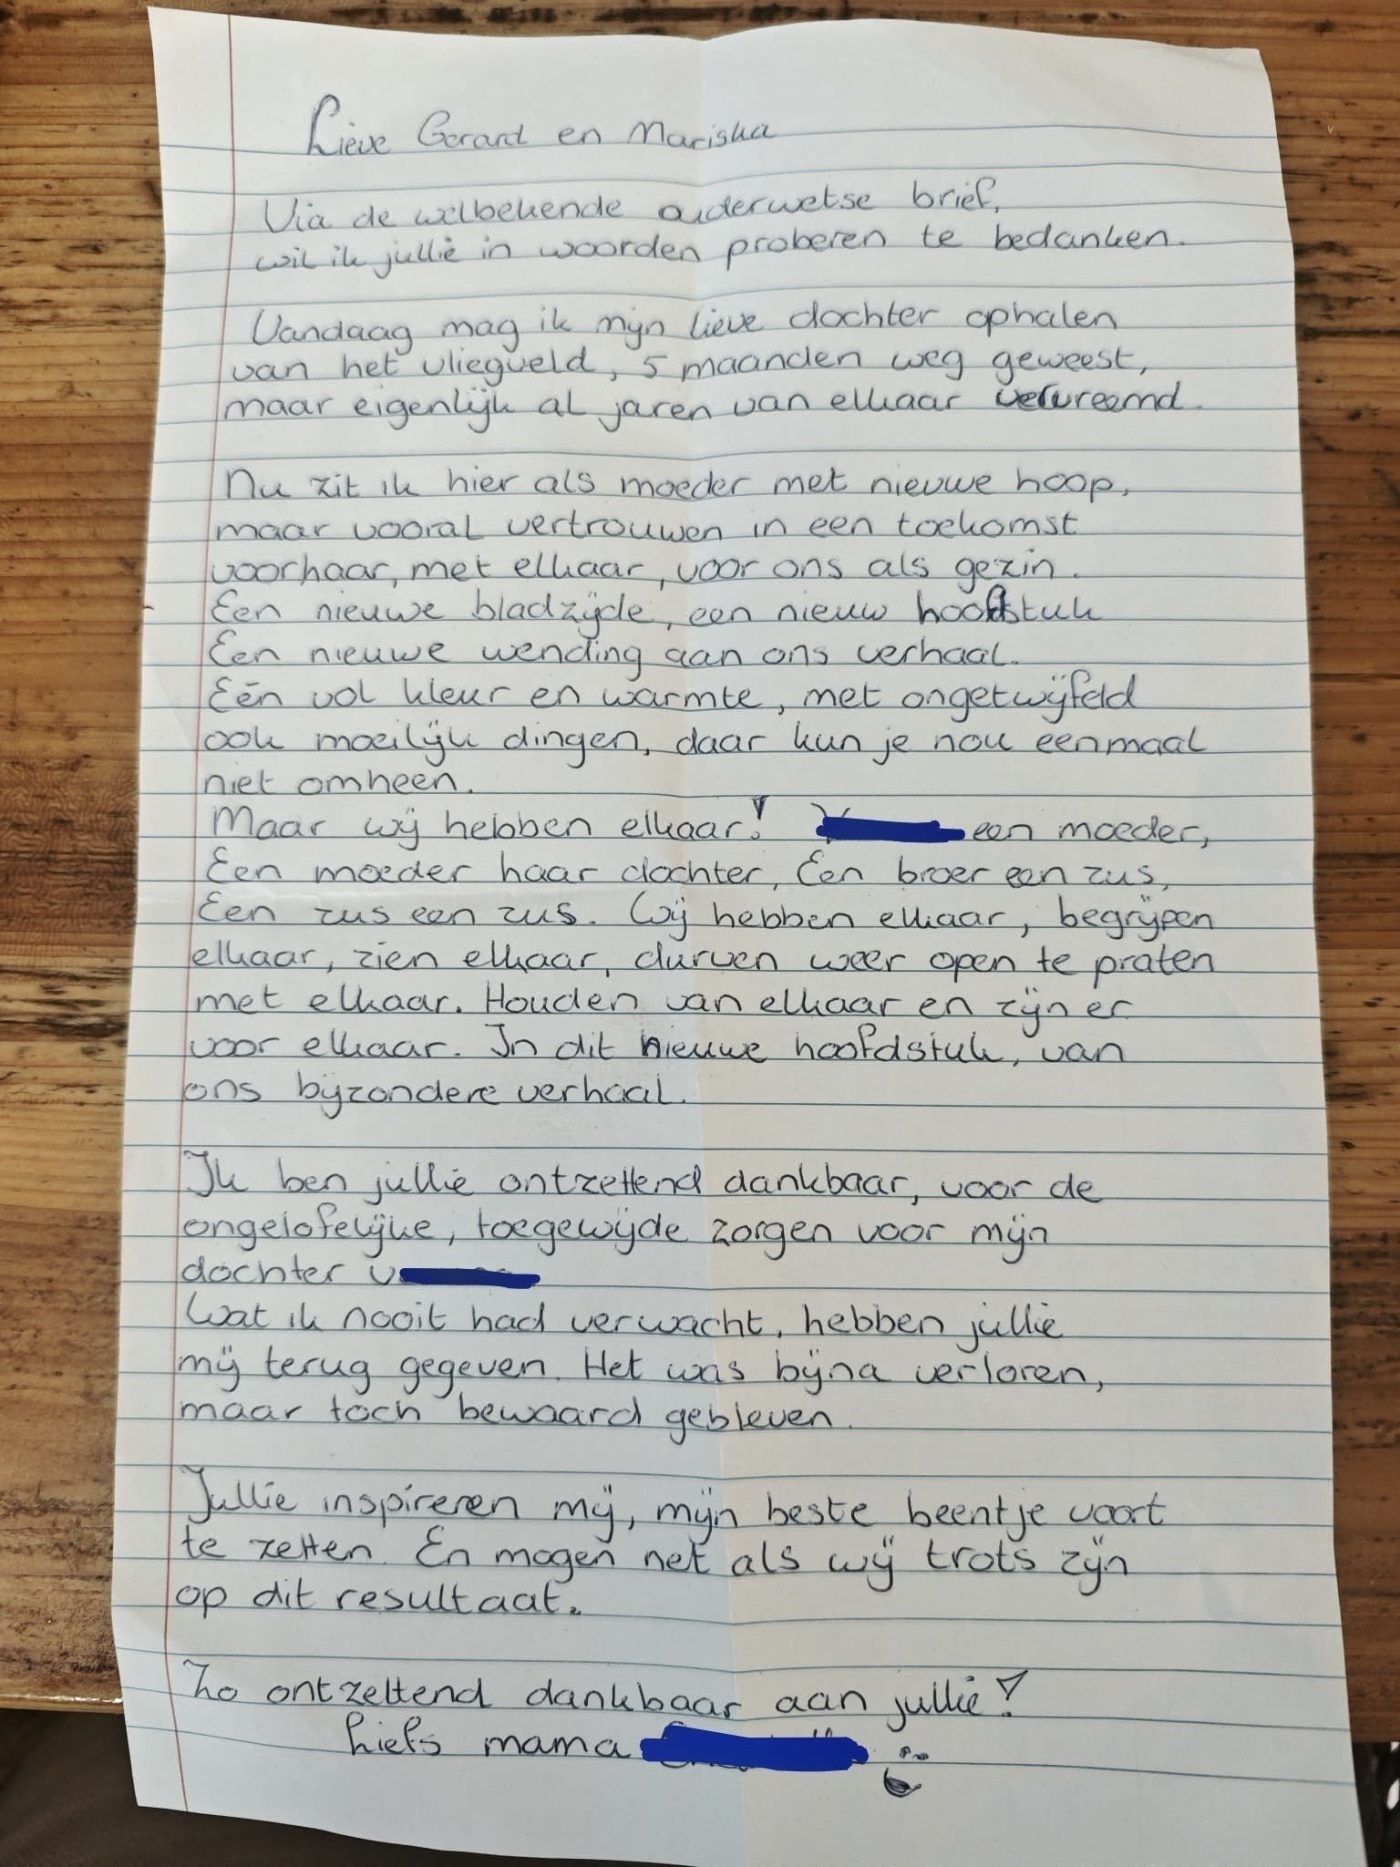 Lieve Gerard en Mariska
Via de welbekende ouderwetse brief,
wil ik jullie in woorden proberen te bedanken.
Vandaag mag ik mijn lieve dochter ophalen
van het vliegveld, 5 maanden weg geweest,
maar eigenlijk al jaren van elkaar vervreemd.
Nu zit ik hier als moeder met nieuwe hoop,
maar vooral vertrouwen in een toekomst
voorhaar, met elkaar, voor ons als gezin.
Een nieuwe bladzijde, een nieuw hoofstuk
Een nieuwe wending aan ons verhaal.
Eén vol kleur en warmte, met ongetwijfeld
ook moeilijk dingen, daar kun je nou eenmaal
niet omheen.
Maar wij hebben elkaar! een moeder,
Een moeder haar dochter, Een broer een zus,
Een zus een zus. Wij hebben elkaar, begrijpen
elkaar, zien elkaar, durven weer open te praten
met elkaar. Houden van elkaar en zijn er
voor elkaar. In dit nieuwe hoofdstuk, van
ons bijzondere verhaal.
Ik ben jullie ontzettend dankbaar, voor de
ongelofelijke, toegewijde zorgen voor mijn
dochter
Wat ik nooit had verwacht, hebben jullie
mij terug gegeven. Het was bijna verloren,
maar toch bewaard gebleven.
Jullie inspireren mij, mijn beste beentje voort
te zetten. En mogen net als wij trots zijn
op dit resultaat.
Zo ontzettend dankbaar aan jullie!
Liefs mama